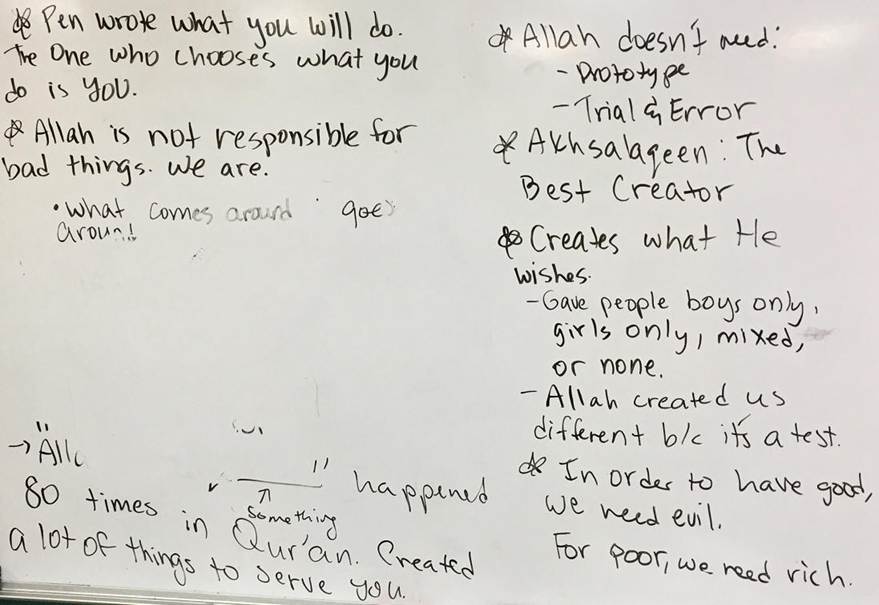 Pen wrote what you will do.
The One who chooses what you
do is YOU.
Allah is not responsible for
bad things. We are.
• What comes around goes
around!
→ "
" happened
80 times in Qur'an. Created
something
a lot of things to serve you.
Allah doesn't need:
- Prototype
- Trial & Error
Akhsalaqeen: The
Best Creator
Creates what He
wishes.
- Gave people boys only,
girls only, mixed,
or none.
- Allah created us
different b/c it's a test.
In order to have good,
we need evil.
For poor, we need rich.